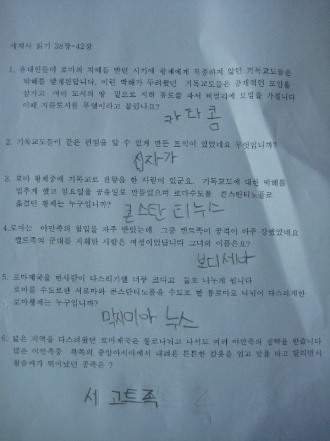 세계사 읽기 38장-42장
1. 유대인들에 로마의 지배를 받던 시기에 황제에게 복종하지 않던 기독교도들은
박해를 받게된답니다. 이런 박해가 두려웠던 기독교도들은 공개적인 모임을
삼가고 여러 도시의 땅 밑으로 지하 통로를 파서 비밀리에 모임을 가집니다
이때 지하도시를 무엇이라고 불렀나요?
카타콤
2. 기독교도들이 같은 편임을 알 수 있게 만든 표식이 있었는데 무엇입니까?
십자가
3. 로마 황제중에 기독교로 전향을 한 사람이 있군요. 기독교도에 대한 박해를
멈추게 했고 일요일을 공휴일로 만들었으며 로마수도를 콘스탄티노플로
옮겼던 황제는 누구입니까?
콘스탄티누스
4.로마는 야만족의 침입을 자주 받았는데 그중 켈트족이 공격이 아주 강했었네요
켈트족의 군대를 지휘한 사람은 여성이었답니다 그녀의 이름은요?
보디세나
5. 로마제국을 한사람이 다스리기엔 너무 크다고 둘로 나누게 됩니다
로마를 수도로한 서로마와 콘스탄티노플을 수도로 한 동로마로 나뉘어 다스리게한
로마황제는 누구입니까?
막시미아누스
6. 넓은 지역을 다스리웠던 로마제국은 둘로나뉘고 나서도 여러 야만족의 침략을 받습니다
많은 야만족중 북쪽의 중앙아시아에서 내려온 튼튼한 갑옷을 입고 말을 타고 달리면서
활솜씨가 뛰어났던 종족은 ?
서 고트족